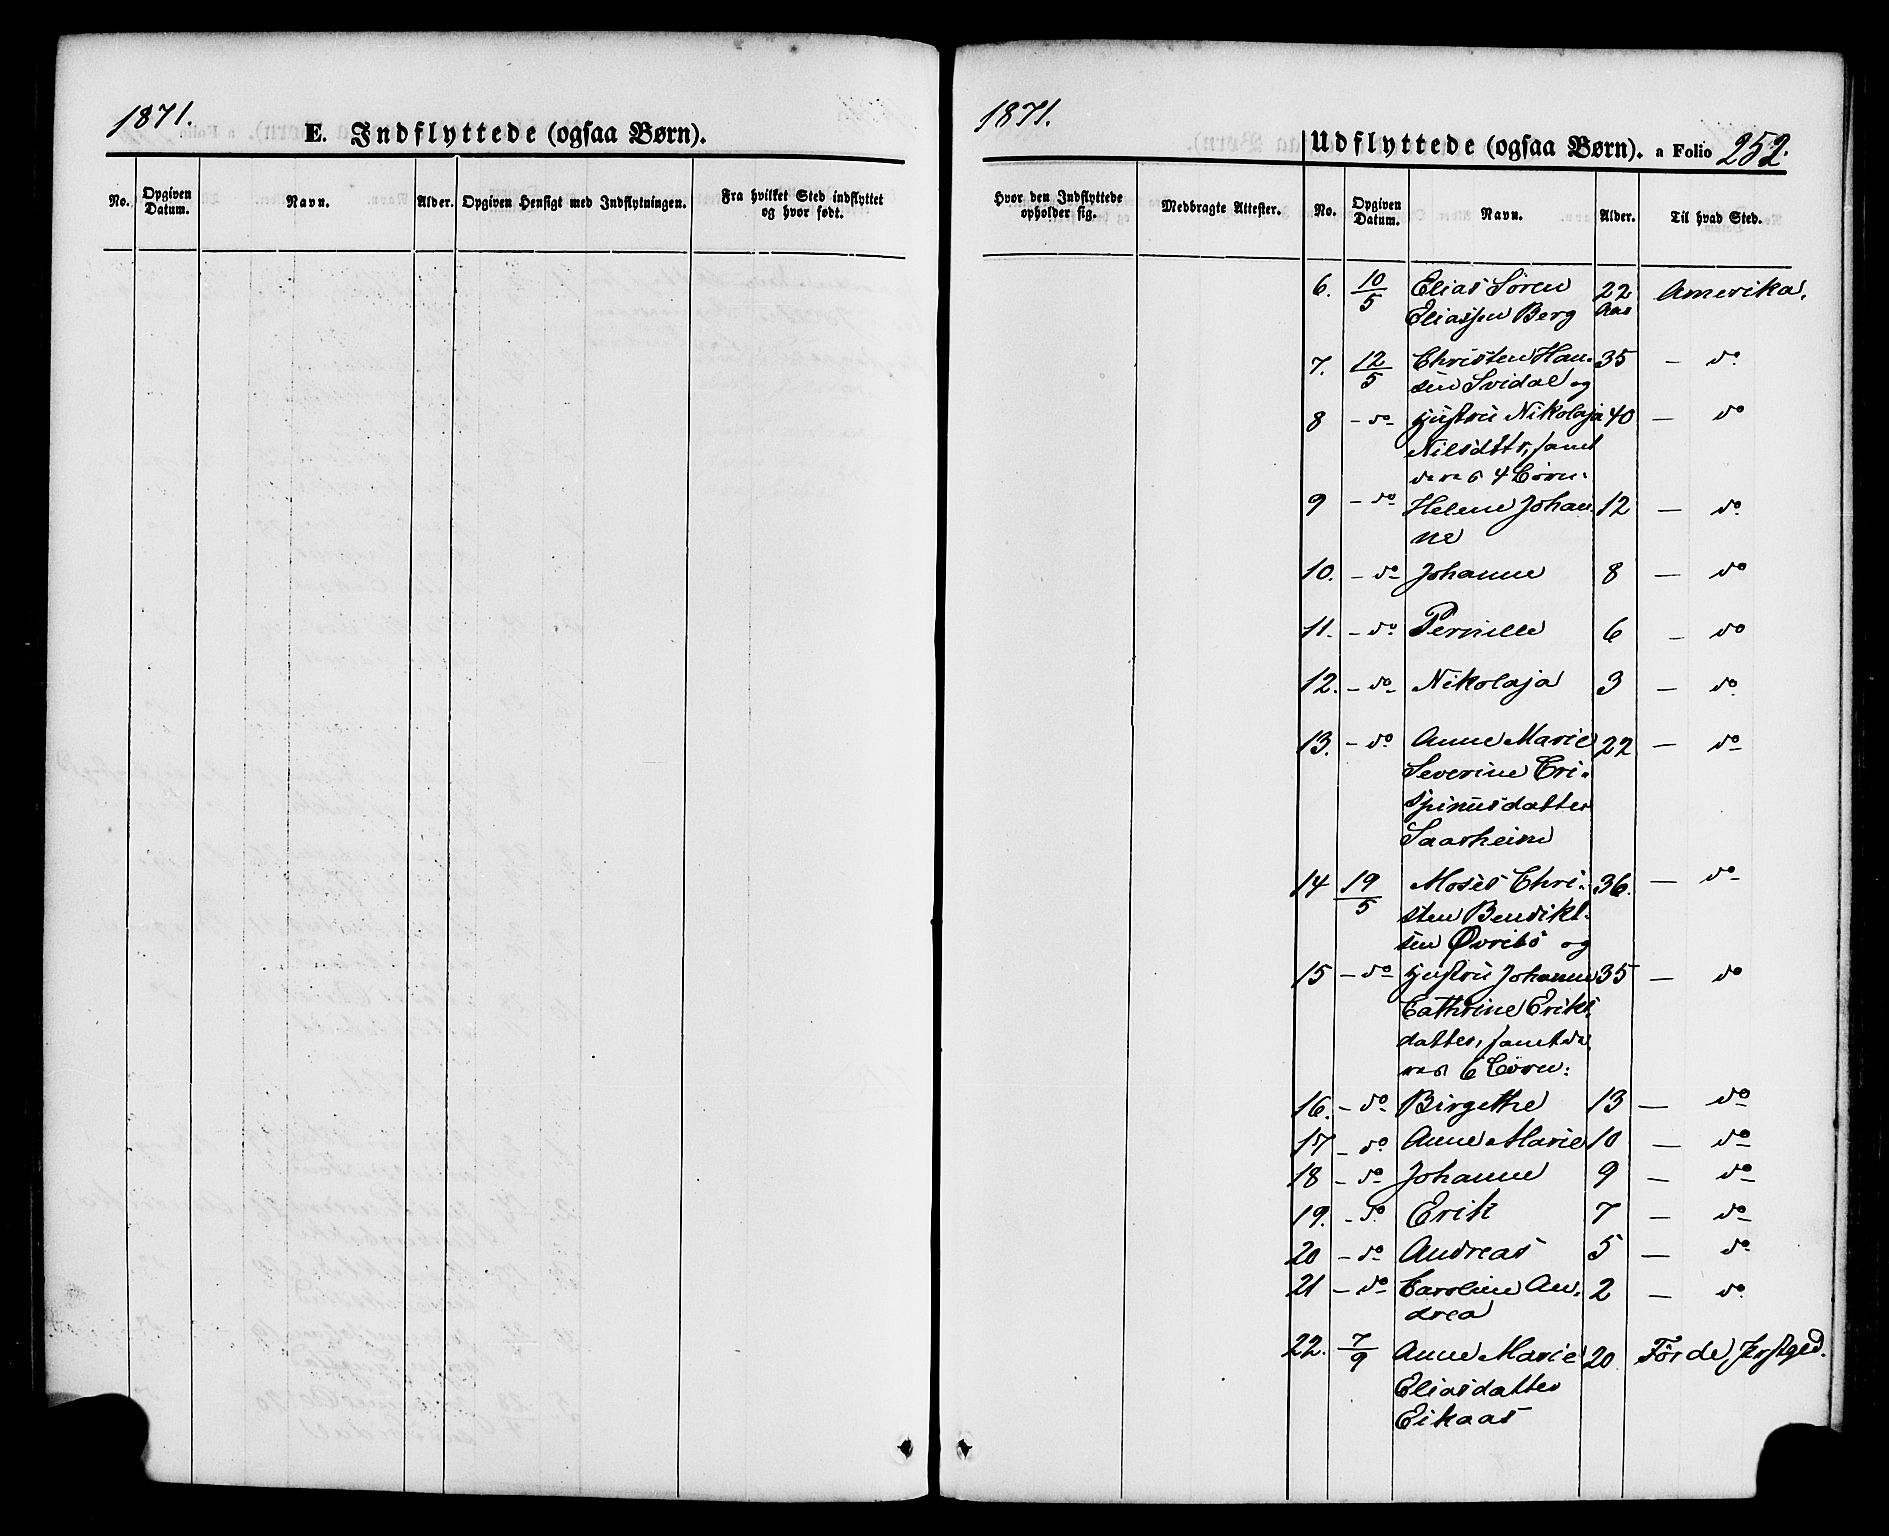 1871.
E. Indflyttede (ogsaa Børn).
No.
Opgiven
Datum.
Navn.
Alder.
Opgiven Hensigt med Indflytningen.
Fra hvilket Sted indflyttet
og hvor født.
1871.
Udflyttede (ogsaa Børn). a Folio 252.
Hvor den Indflyttede
opholder sig.
Medbragte Attester.
No.
Opgiven
Datum.
Navn.
Alder.
Til hvad Sted.
6. 10/5 Elias Søren 22 Amerika.
Eliassen Berg Aar
7. 12/5 Christen Han- 35 — do
sen Svidal og
8 - do Hustru Nikolaja 40 — do
Nilsdttr, samt
deres 4 Børn:
9 - do Helene Johan- 12 — do
ne
10. - do Johanne 8 — do
11. - do Pernille 6 — do
12. - do Nikolaja 3 — do
13. - do Anne Marie 22 — do
Severine Cri-
spinusdatter
Saarheim
14 19/5 Moses Chri- 36. — do
sten Bendikt-
sen Øvrebö og
15 - do Hustru Johanne 35 — do
Cathrine Eriks-
datter, samt de-
res 6 Børn:
16. - do Birgethe 13 — do
17 - do Anne Marie 10 — do
18 - do Johanne 9 — do
19. - do Erik 7 — do
20 - do Andreas 5 — do
21 - do Caroline An- 2 — do
drea
22. 7/9 Anne Marie 20 Førde Prstgjed.
Eliasdatter
Eikaas